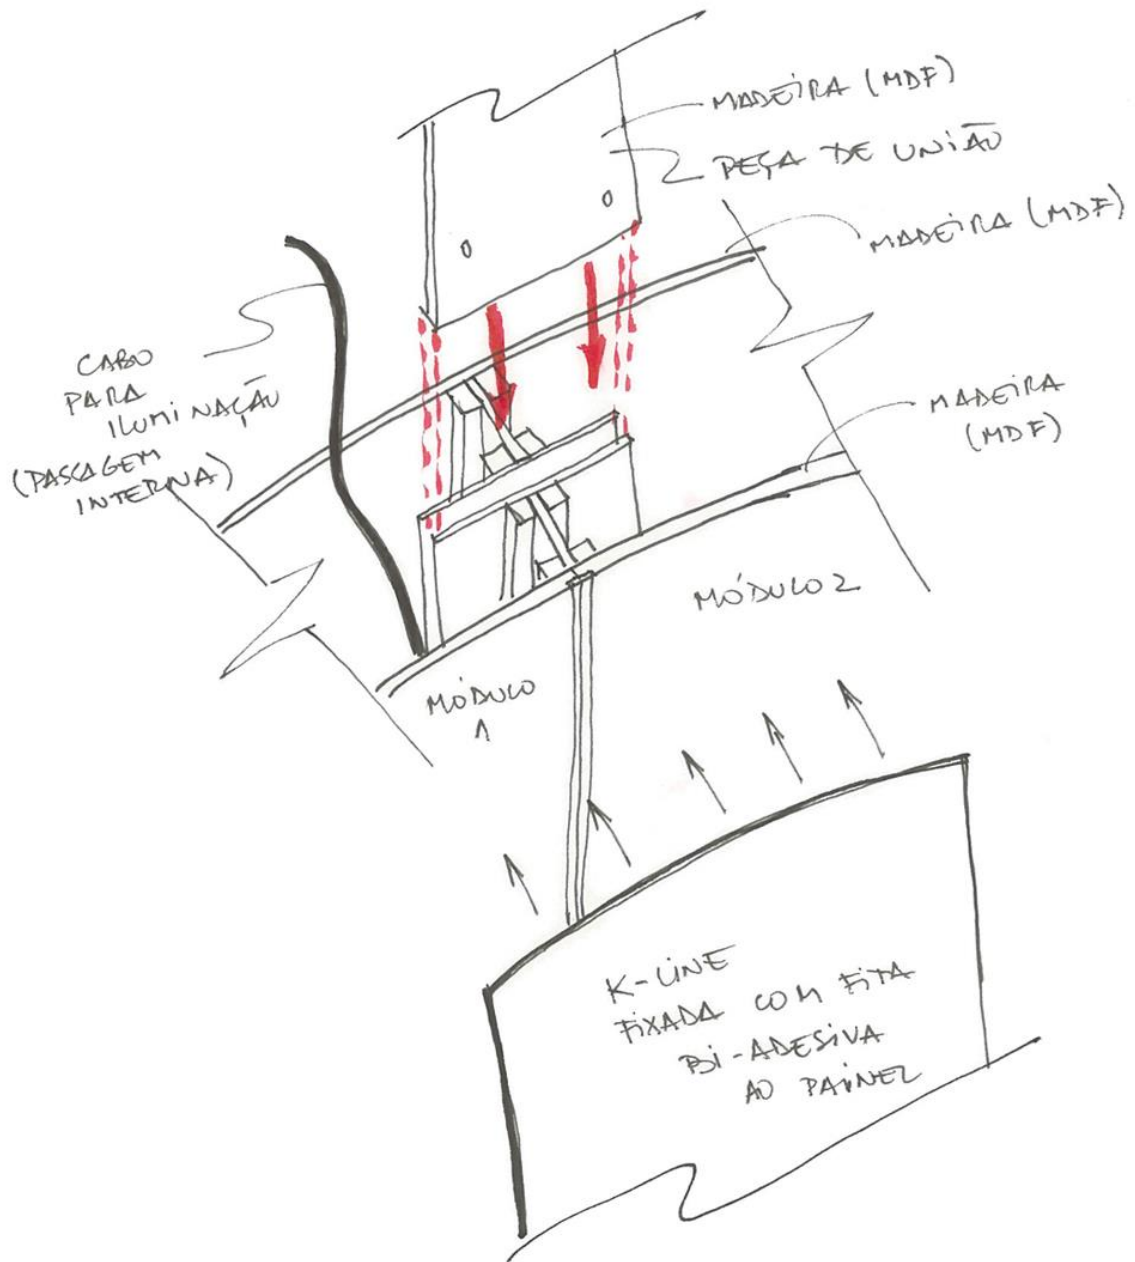 MADEIRA (MDF)
PEÇA DE UNIÃO
MADEIRA (MDF)
CABO
PARA
ILUMINAÇÃO
(PASSAGEM
INTERNA)
MADEIRA
(MDF)
MÓDULO 2
MÓDULO
1
K-LINE
FIXADA COM FITA
BI-ADESIVA
AO PAINEL